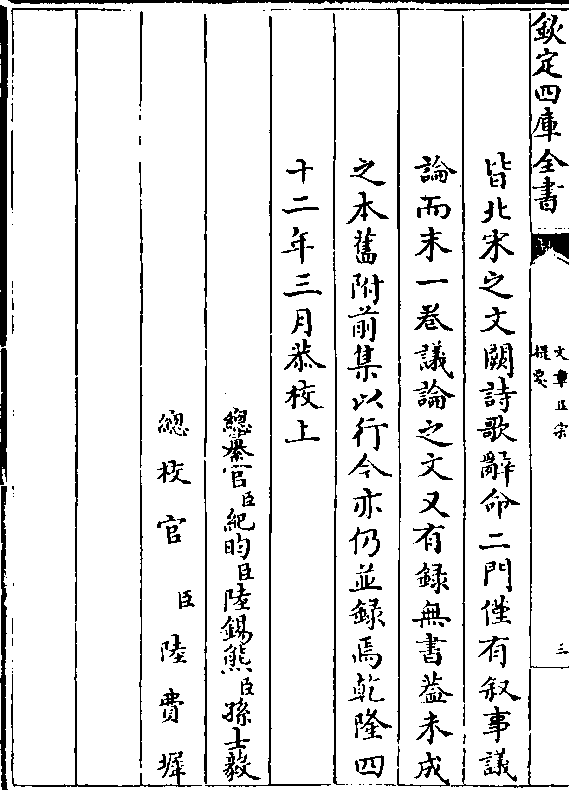 欽定四庫全書
文章正宗
提要
三
皆北宋之文闕詩歌辭命二門僅有叙事議
論而末一卷議論之文又有録無書葢未成
之本舊附前集以行今亦仍並録焉乾隆四
十二年三月恭校上
總纂官臣紀昀臣陸錫熊臣孫士毅
總校官臣陸費墀